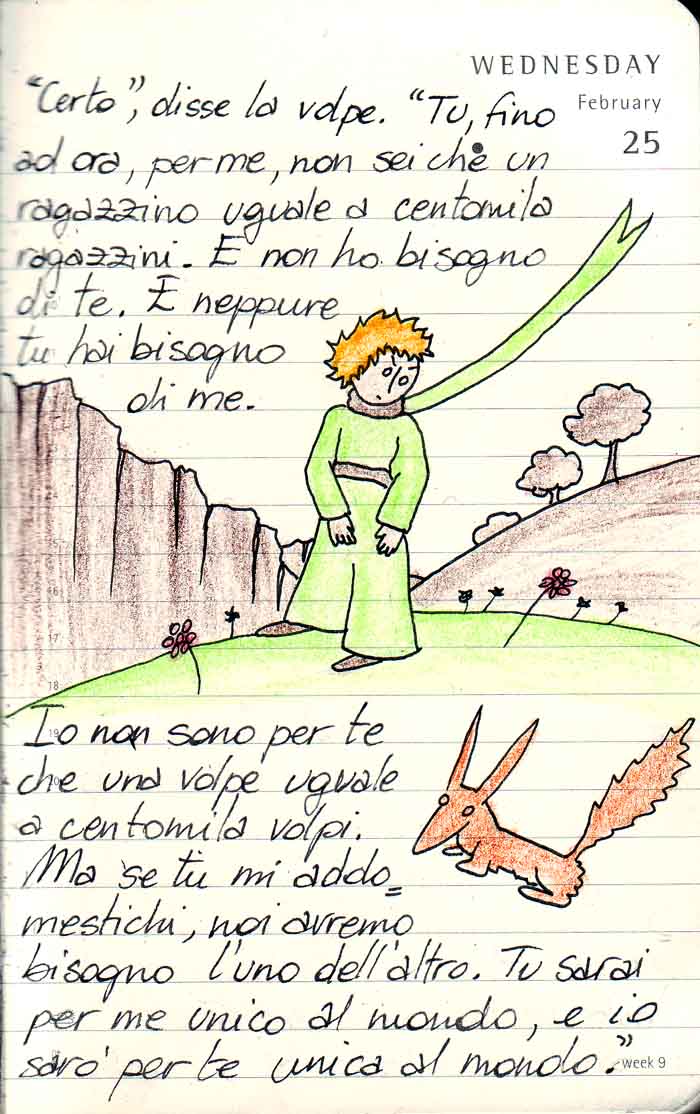 WEDNESDAY
February
25
"Certo", disse la volpe. "Tu, fino
ad ora, per me, non sei che un
ragazzino uguale a centomila
ragazzini. E non ho bisogno
di te. E neppure
tu hai bisogno
di me.
16
17
18
19
Io non sono per te
che una volpe uguale
a centomila volpi.
Ma se tu mi addo=
mestichi, noi avremo
bisogno l'uno dell'altro. Tu sarai
per me unico al mondo, e io
sarò per te unica al mondo."
week 9